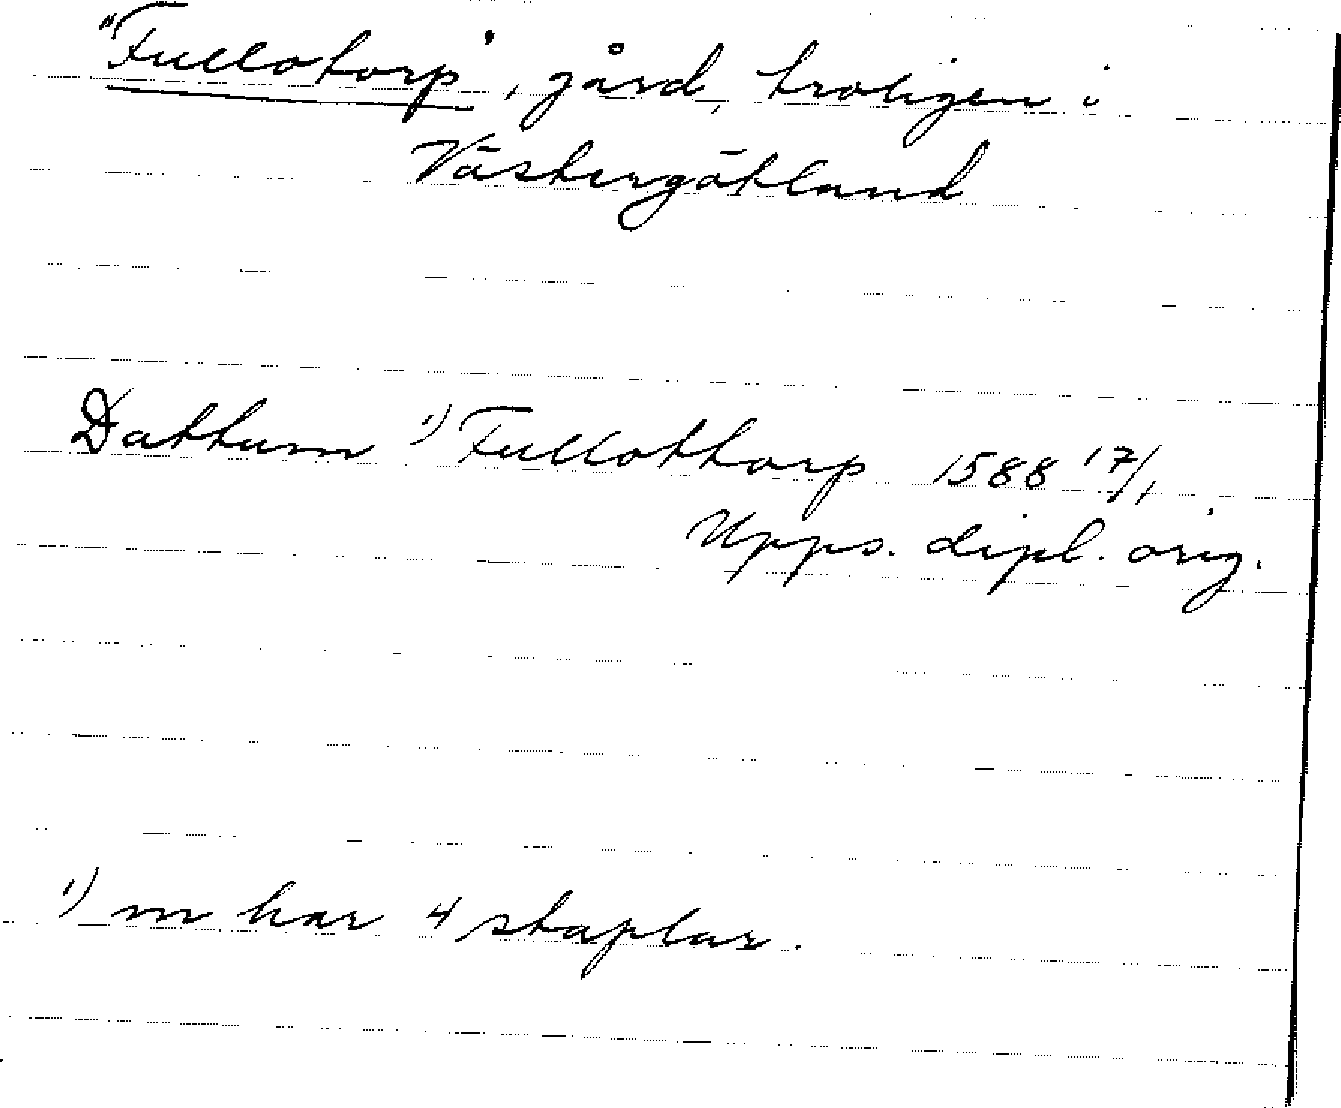 "Fullotorp", gård, troligen i
Västergötland
Dattum ¹) Fullottorp 1588 17/1
Upps. dipl. orig.
¹) m har 4 staplar.